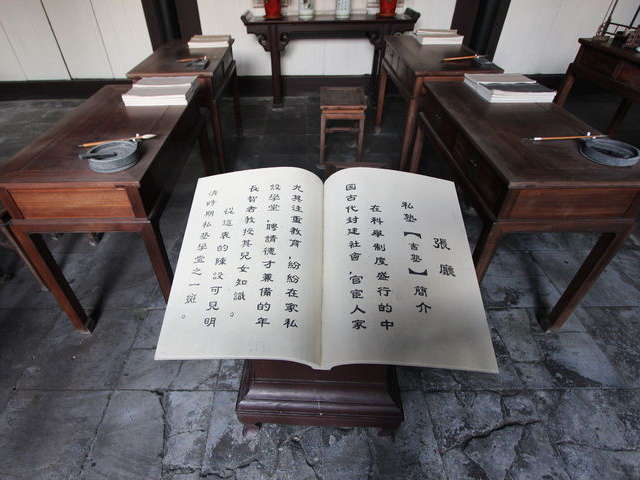 張廳
私塾【書塾】簡介
在科學制度盛行的中
國古代封建社會，官宦人家
尤其注重教育，紛紛在家私
設學堂，聘請德才兼備的年
長智者教授其兒女知識。
從這裹的陳設可見明
清時期私塾學堂之一斑。